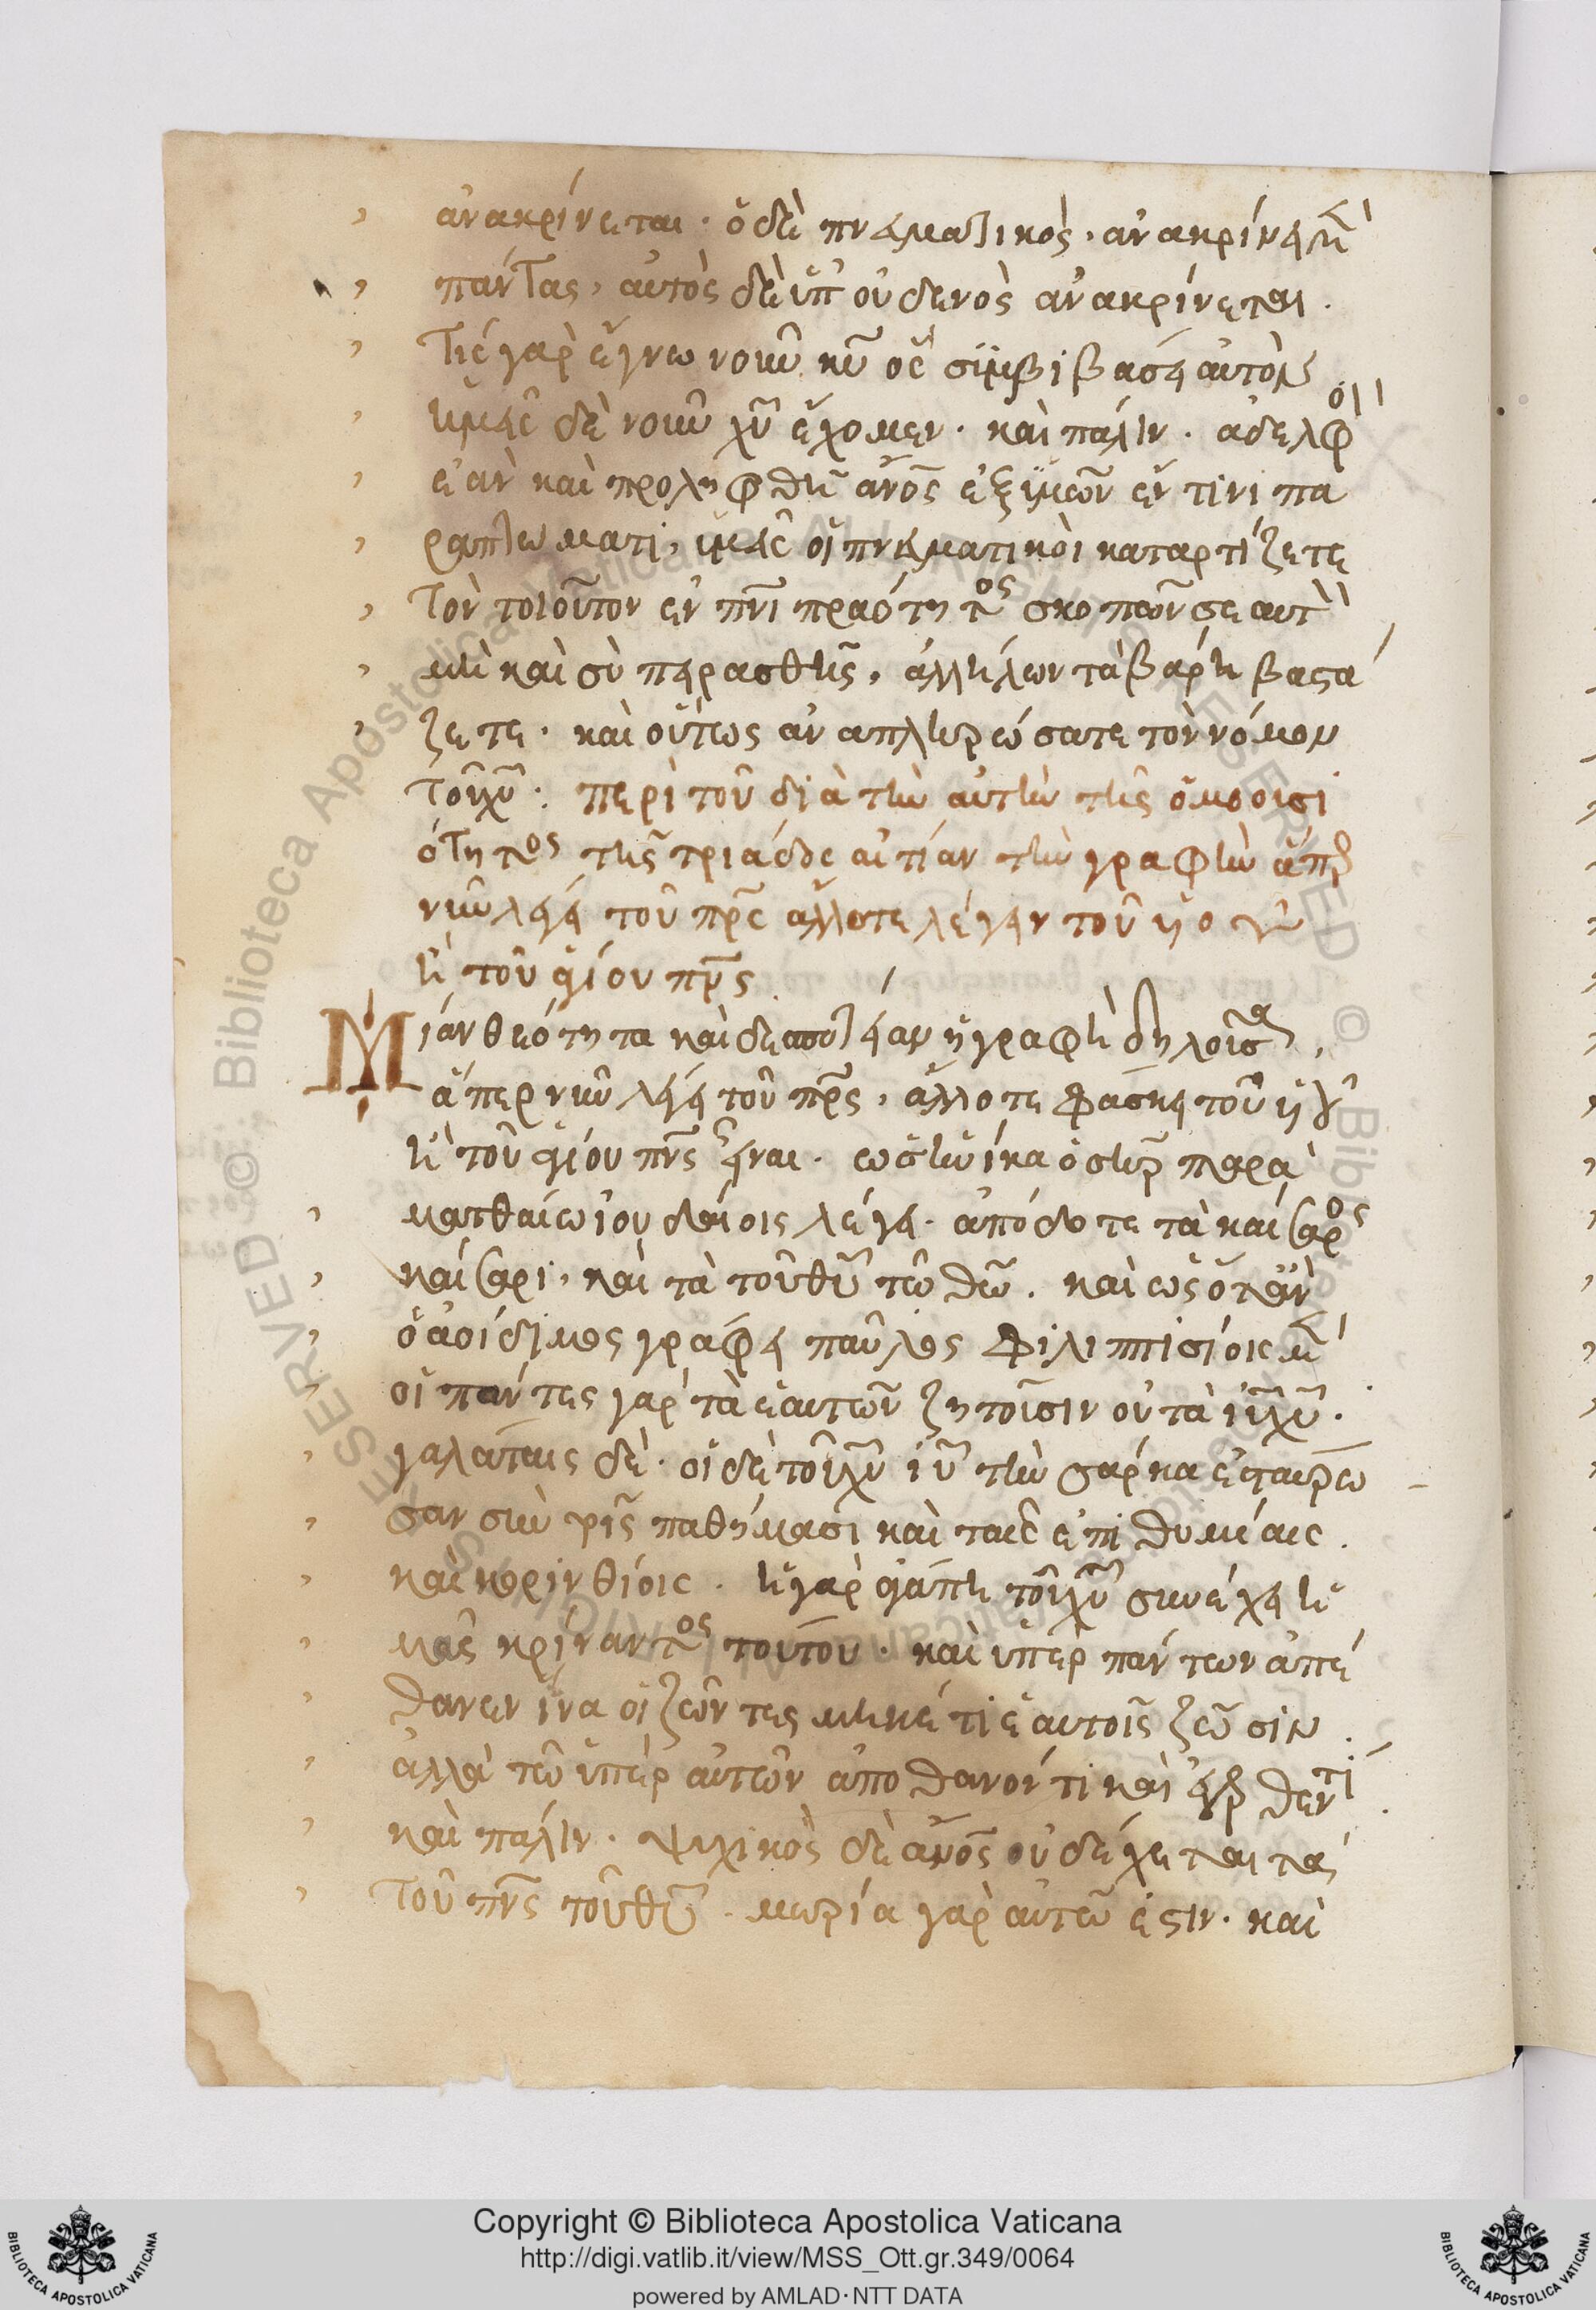 ἀνακρίνεται · ὁ δὲ πνευματικὸς · ἀνακρίνει μὲν
πάντας, αὐτὸς δὲ ὑπ' οὐδενὸς ἀνακρίνεται .
Τίς γὰρ ἔγνω νοῦν κυ ὃς συμβιβάσει αὐτόν
ἡμεῖς δὲ νοῦν χυ ἔχομεν · καὶ πάλιν · ἀδελφοὶ
ἐὰν καὶ προληφθῆ ανος ἐξ ὑμῶν ἔν τινι πα
ραπτώματι, ὑμεῖς οἱ πνευματικοὶ καταρτίζετε
τὸν τοιοῦτον ἐν πνι πραότητος σκοπῶν σεαυτὸν
μὴ καὶ σὺ πειρασθῆς, ἀλλήλων τὰ βάρη βαστά
ζετε · καὶ οὕτως ἀναπληρώσατε τὸν νόμον
τοῦ χυ : περὶ τοῦ διὰ τὴν αὐτὴν τῆς ὁμοουσι
ότητος τῆς τριάδος αἰτίαν τὴν γραφὴν ἅπερ
νῦν λέγει τοῦ πρς ἄλλοτε λέγειν τοῦ υἱοῦ
ἢ τοῦ ἁγίου πνς
Μίαν θεότητα καὶ δεσποτείαν ἡ γραφὴ δηλοῦσα,
ἅπερ νῦν λέγει τοῦ πρς, ἄλλοτε φάσκει τοῦ υἱοῦ
ἢ τοῦ ἁγίου πνς εἶναι · ὡς ἡνίκα ὁ σηρ παρὰ
ματθαίω ἰουδαίοις λέγει · ἀπόδοτε τὰ καίσαρος
καίσαρι, καὶ τὰ τοῦ θυ τῶ θω . καὶ ὡς ὅταν
ὁ ἀοίδιμος γράφει παῦλος φιλιππισίοις μὲν
οἱ πάντες γὰρ τὰ ἑαυτῶν ζητοῦσιν οὐ τὰ ιυ χυ ·
γαλάταις δὲ · οἱ δὲ τοῦ χυ ιυ τὴν σάρκα ἐσταύρω
σαν σὺν τοῖς παθήμασι καὶ ταῖς ἐπιθυμίαις .
καὶ κορινθίοις · ἡ γὰρ ἀγάπη τοῦ χυ συνέχει ἡ
μᾶς κρίναντος τοῦτου · καὶ ὑπὲρ πάντων ἀπέ
θανεν ἵνα οἱ ζῶντες μηκέτι ἑαυτοῖς ζῶσιν .
ἀλλὰ τῶ ὑπὲρ αὐτῶν ἀποθανόντι καὶ ἐγερθέντι .
καὶ πάλιν · ψυχικὸς δὲ ανος οὐ δέχεται τὰ
τοῦ πνς τοῦ θυ · μωρία γὰρ αὐτῶ ἐστιν · καὶ
Copyright © Biblioteca Apostolica Vaticana
http://digi.vatlib.it/view/MSS_Ott.gr.349/0064
powered by AMLAD·NTT DATA